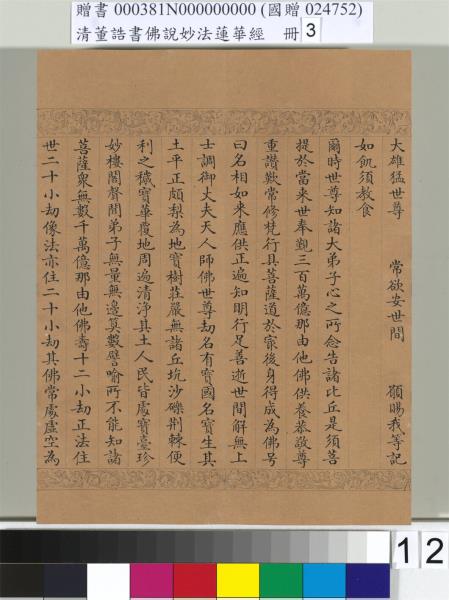 贈書 000381N000000000 (國贈 024752)
清董誥書佛說妙法蓮華經 冊 3
大雄猛世尊 常欲安世間 願賜我等記
如飢須教食
爾時世尊知諸大弟子心之所念告諸比丘是須菩
提於當來世奉覲三百萬億那由他佛供養恭敬尊
重讚歎常修梵行具菩薩道於冣後身得成為佛号
曰名相如来應供正遍知明行足善逝世間解無上
士調御丈夫天人師佛世尊劫名有寶國名寶生其
土平正頗梨為地寶樹莊嚴無諸丘坑沙礫荆棘便
利之穢寶華覆地周遍清淨其土人民皆處寶臺珍
妙樓閣聲聞弟子無量無邊筭數譬喻所不能知諸
菩薩眾無數千萬億那由他佛壽十二小劫正法住
世二十小劫像法亦住二十小劫其佛常處虛空為
12